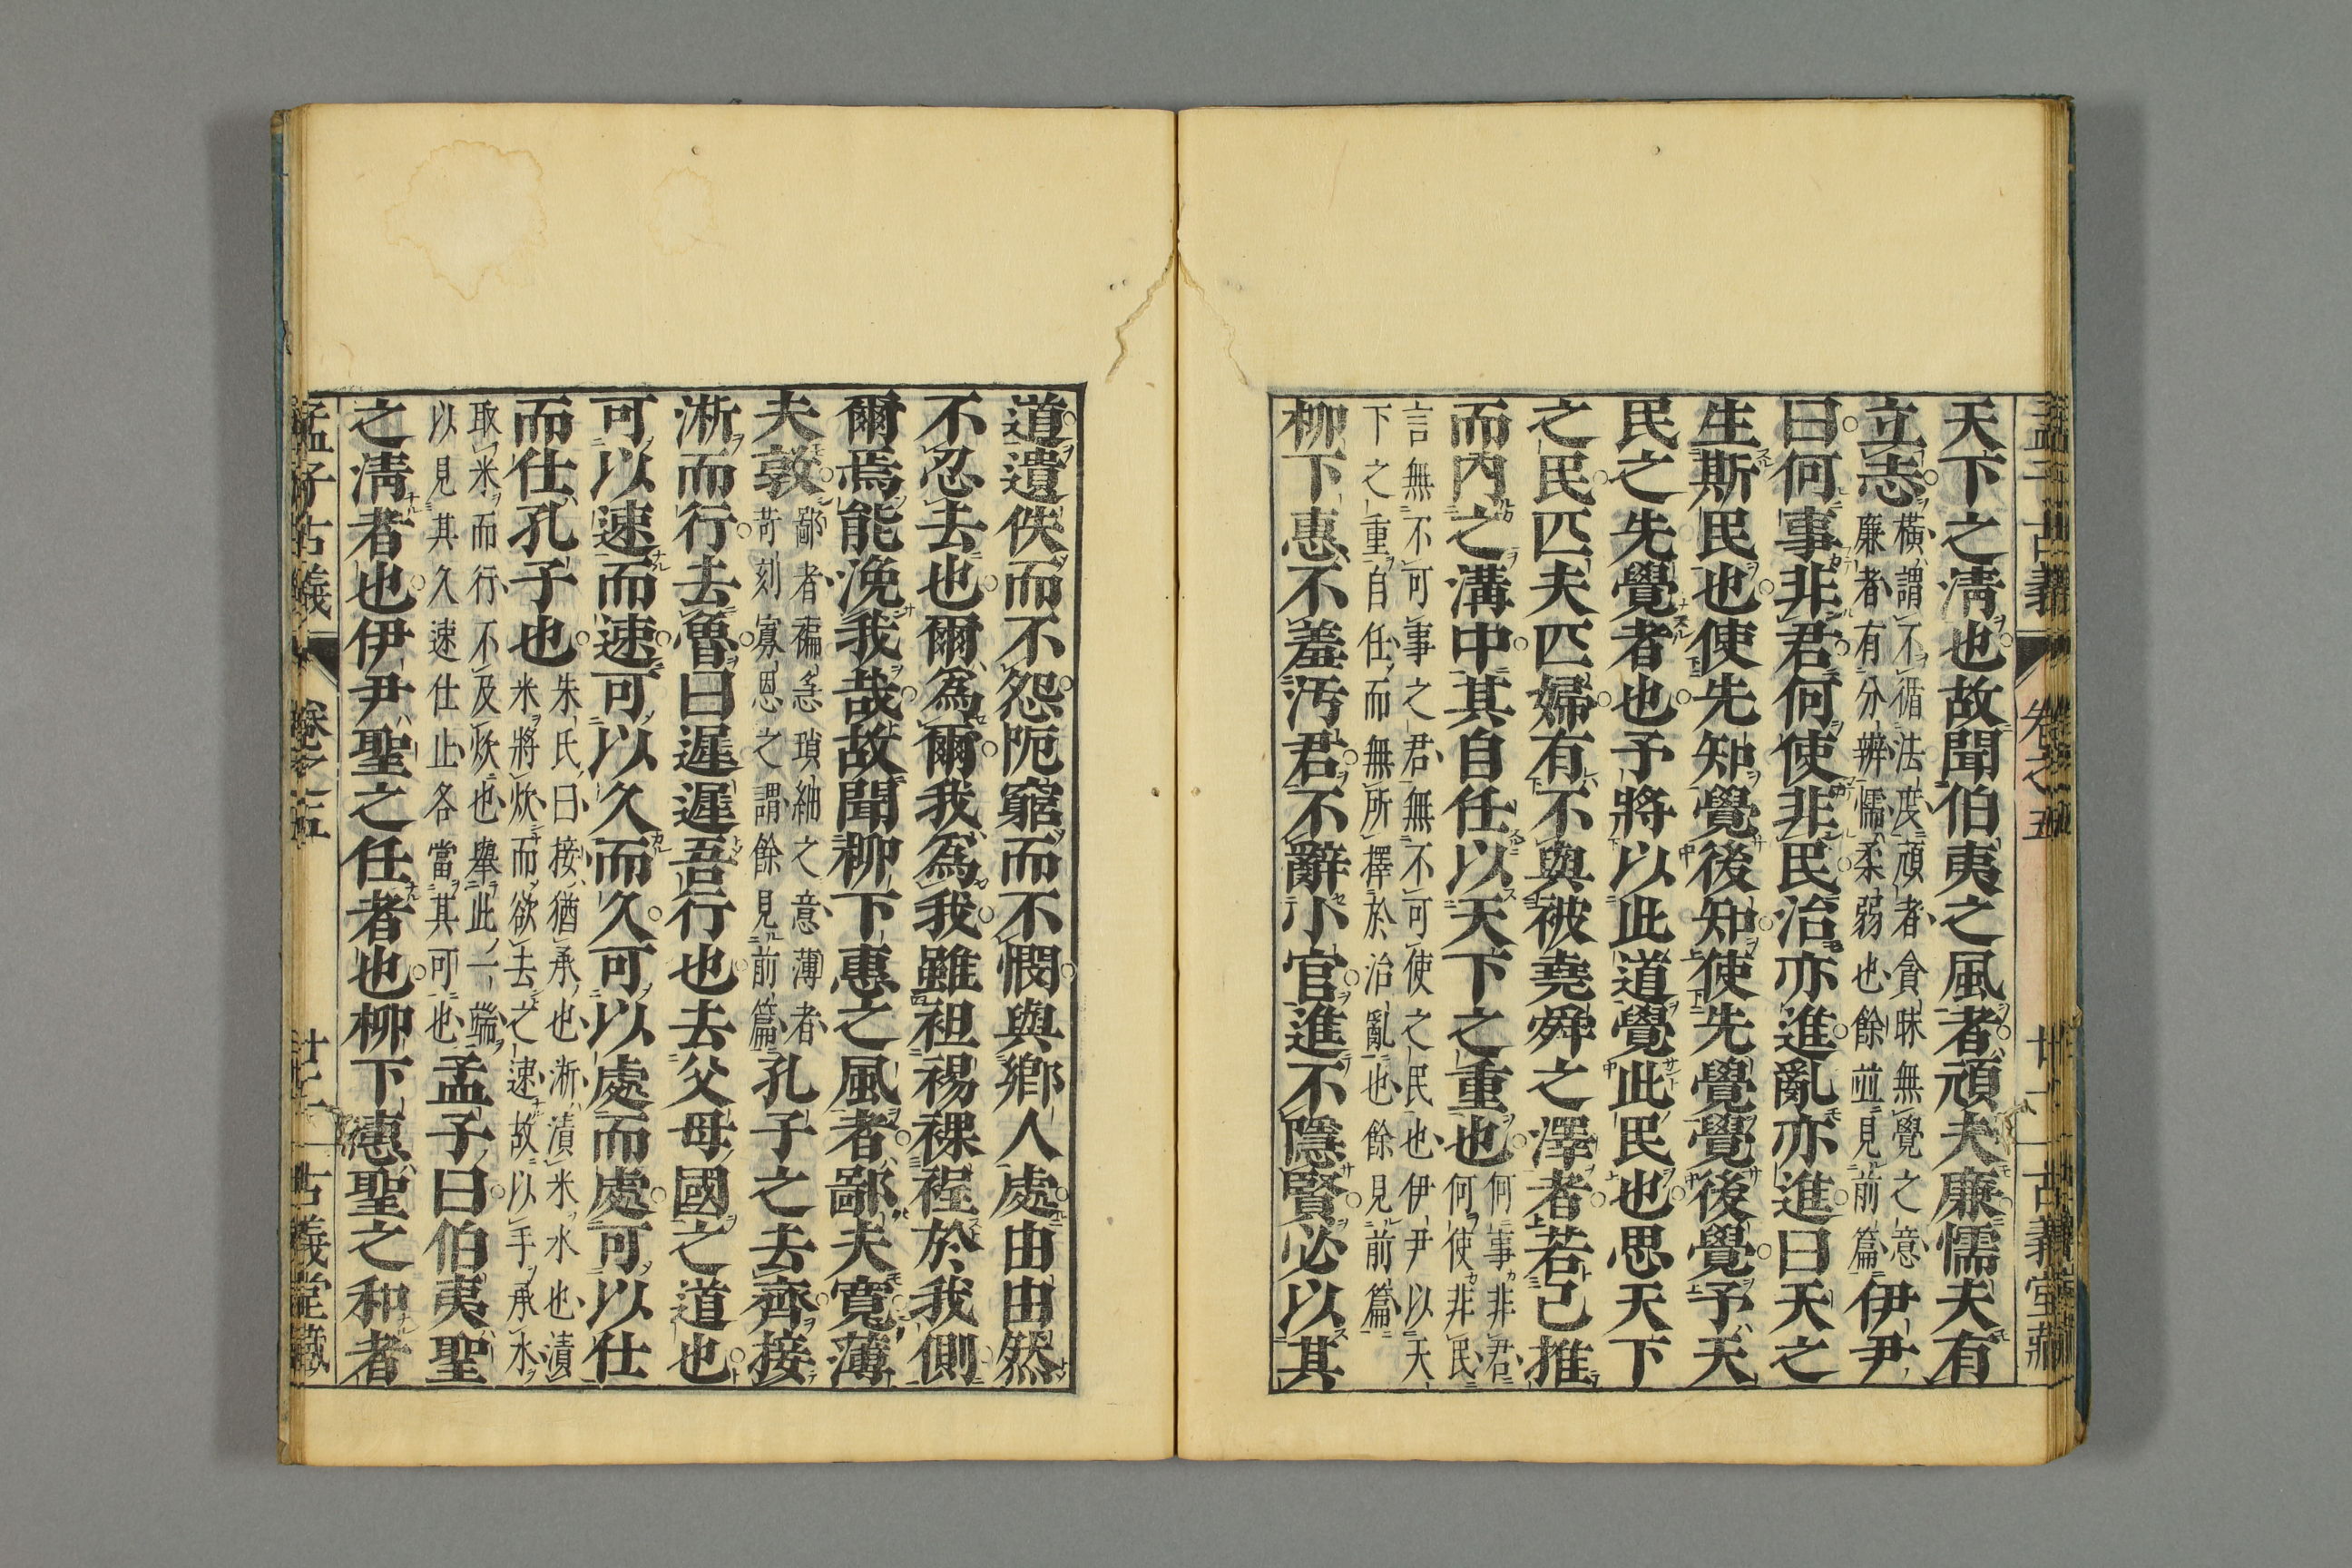 天下之淸也故聞伯夷之風者頑夫廉懦夫有
立志橫謂不循法度頑者貪昧無覺之意
廉者有分辨懦柔弱也餘並見前篇伊尹
曰何事非君何使非民治亦進亂亦進曰天之
生斯民也使先知覺後知使先覺覺後覺予天
民之先覺者也予將以此道覺此民也思天下
之民匹夫匹婦有不與被堯舜之澤者若己推
而內之溝中其自任以天下之重也何事非君
何使非民
言無不可事之君無不可使之民也伊尹以天
下之重自任而無所擇於治亂也餘見前篇
柳下惠不羞汚君不辭小官進不隱賢必以其
道遺佚而不怨阨窮而不憫與鄉人處由由然
不忍去也爾爲爾我爲我雖袒裼裸裎於我側
爾焉能浼我哉故聞柳下惠之風者鄙夫寬薄
夫敦鄙者褊急瑣細之意薄者
苛刻寡恩之謂餘見前篇孔子之去齊接
淅而行去魯曰遲遲吾行也去父母國之道也
可以速而速可以久而久可以處而處可以仕
而仕孔子也朱氏曰接猶承也淅漬米水也漬
米將炊而欲去之速故以手承水
取米而行不及炊也舉此一端
以見其久速仕止各當其可也孟子曰伯夷聖
之淸者也伊尹聖之任者也柳下惠聖之和者
孟子古義 卷之五 古義堂藏